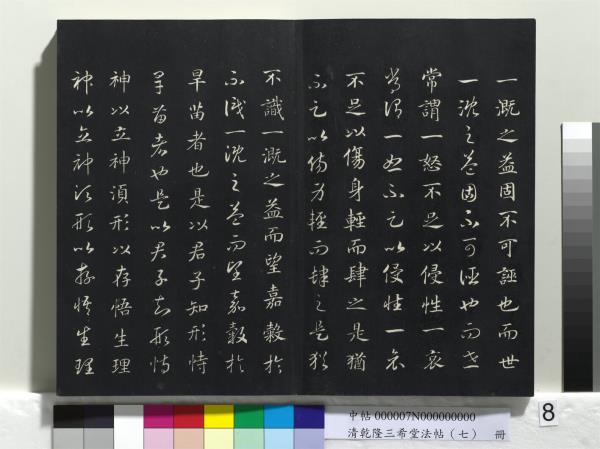 一溉之益固不可誣也而世
一溉之益固不可誣也而世
常謂一怒不足以侵性一哀
常謂一怒不足以侵性一哀
不足以傷身輕而肆之是猶
不足以傷身輕而肆之是猶
不識一溉之益而望嘉穀於
不識一溉之益而望嘉穀於
旱苗者也是以君子知形恃
旱苗者也是以君子知形恃
神以立神湏形以存悟生理
神以立神須形以存悟生理
8
中帖 000007N000000000
清乾隆三希堂法帖（七） 冊